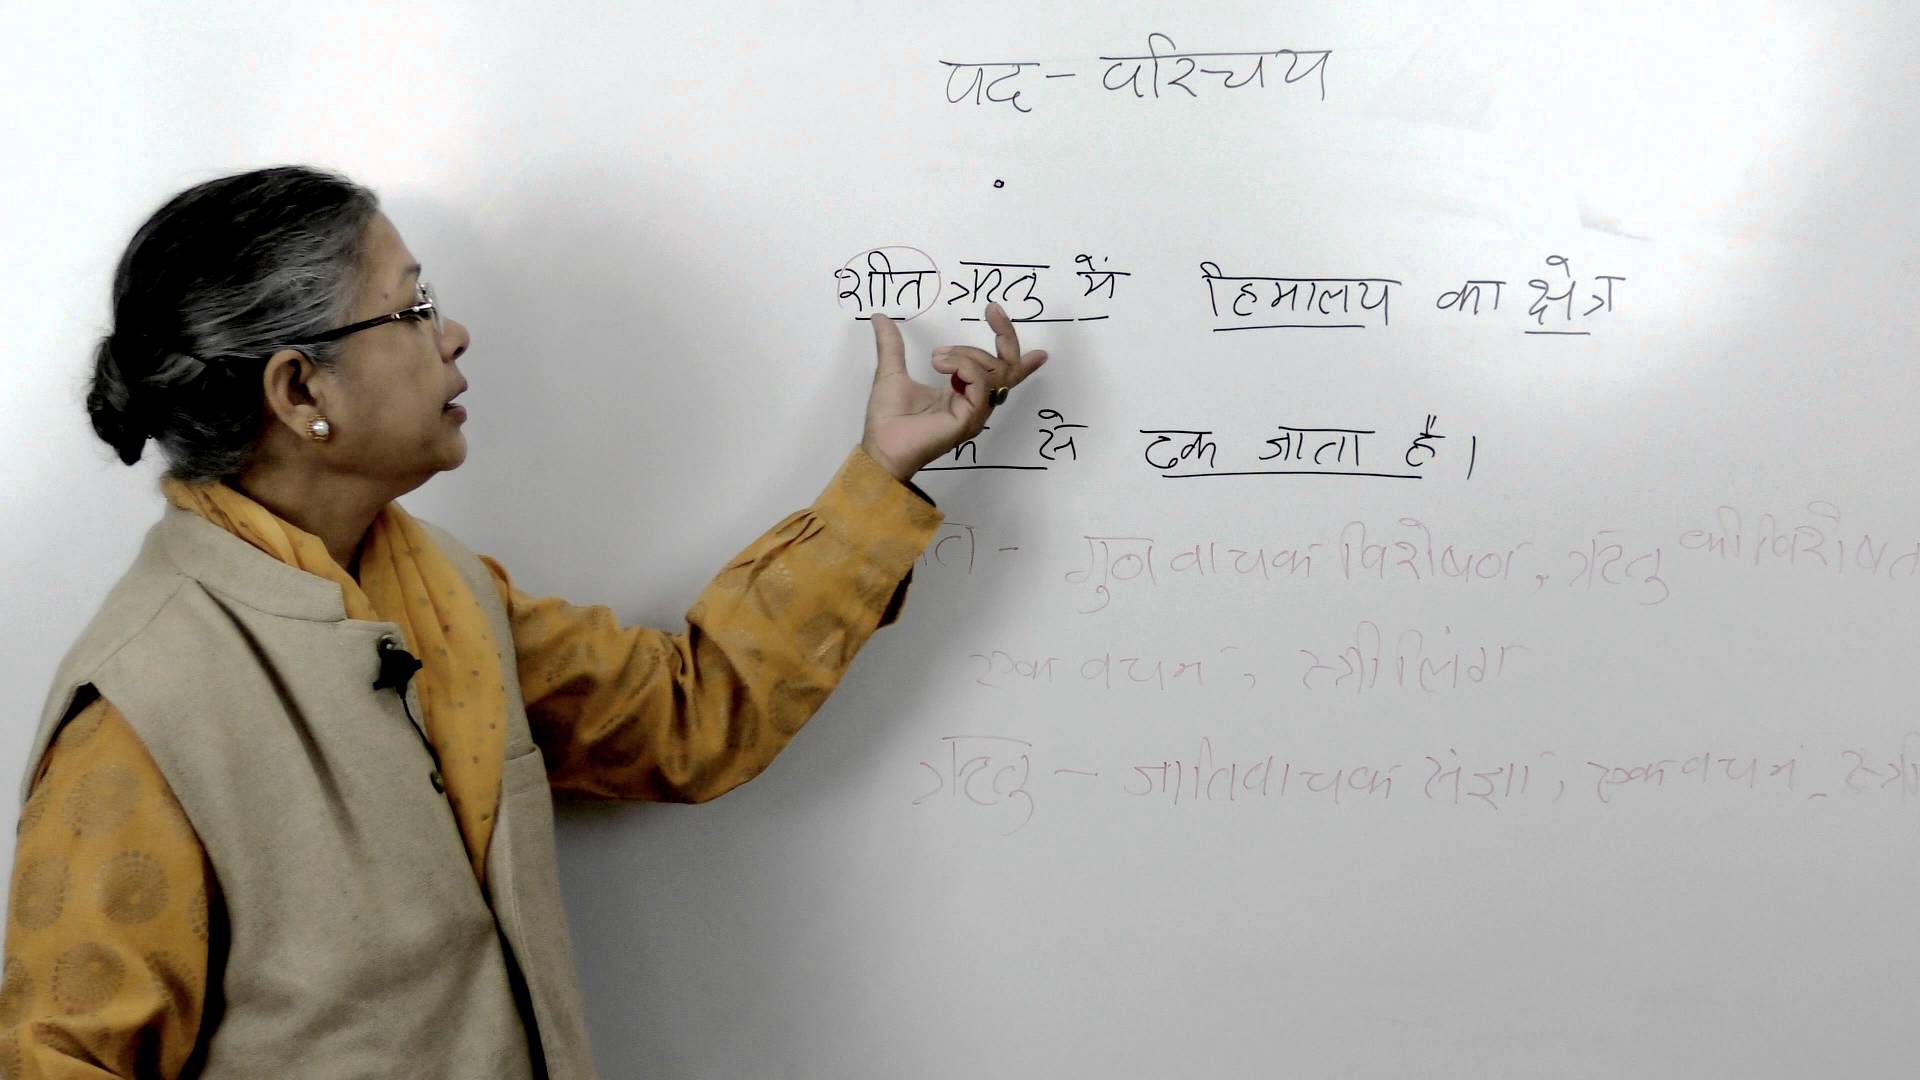 पद - परिचय
शीत ऋतु में हिमालय का क्षेत्र
से ढक जाता है।
गुणवाचक विशेषण, ऋतु की विशेषता
एक वचन, स्त्रीलिंग
ऋतु - जातिवाचक संज्ञा, एकवचन,